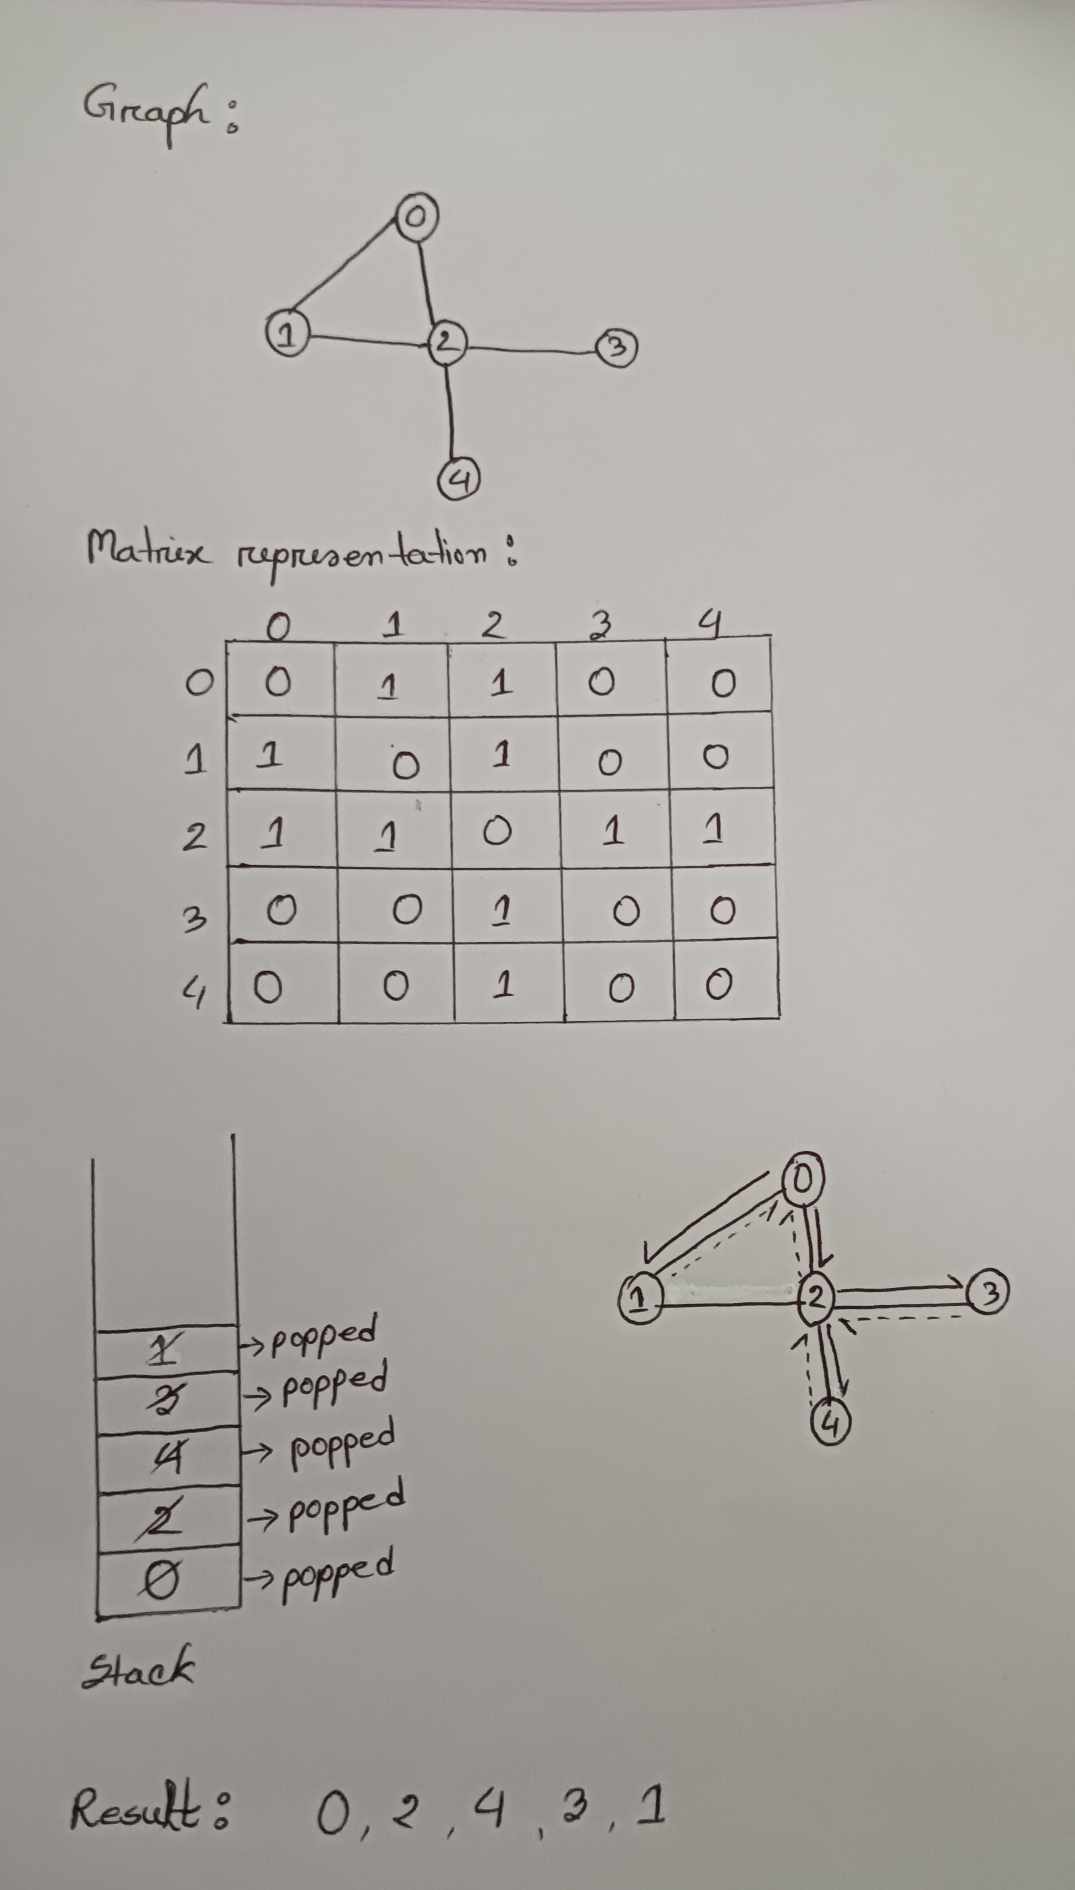 Graph:
0
1 2 3
4
Matrix representation:
0 1 2 3 4
0 0 1 1 0 0
1 1 0 1 0 0
2 1 1 0 1 1
3 0 0 1 0 0
4 0 0 1 0 0
0
1 2 3
4
1 → popped
3 → popped
4 → popped
2 → popped
0 → popped
Stack
Result: 0, 2, 4, 3, 1